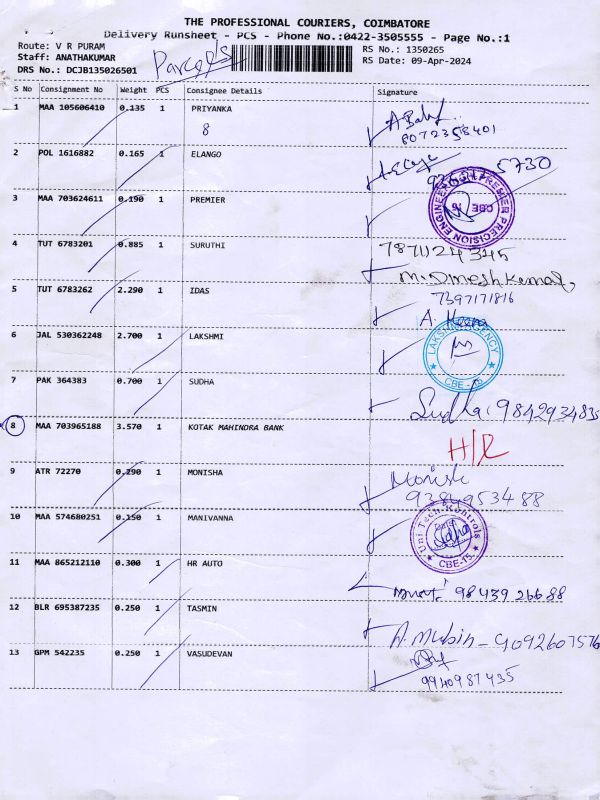 THE PROFESSIONAL COURIERS, COIMBATORE
Delivery Runsheet - PCS - Phone No.:0422-3505555 - Page No.:1
Route: V R PURAM RS No.: 1350265
Staff: ANATHAKUMAR Parcels RS Date: 09-Apr-2024
DRS No.: DCJB135026501
S No Consignment No Weight PCS Consignee Details Signature
1 MAA 105606410 0.135 1 PRIYANKA
8 8072358401
2 POL 1616882 0.165 1 ELANGO
5730
3 MAA 703624611 0.190 1 PREMIER
PREMIER PRECISION ENGINEERS CBE
4 TUT 6783201 0.885 1 SURUTHI 7871124345
M. Dinesh Kumar,
5 TUT 6783262 2.290 1 IDAS 7397171816
A.
6 JAL 530362248 2.700 1 LAKSHMI
LAKSHMI AGENCY CBE - 15
7 PAK 364383 0.700 1 SUDHA
Sudha: 9842934835
8 MAA 703965188 3.570 1 KOTAK MAHINDRA BANK
H/R
9 ATR 72270 0.290 1 MONISHA Monish
9384953488
10 MAA 574680251 0.150 1 MANIVANNA
Uni Tech Kontrols CBE-15.
11 MAA 865212110 0.300 1 HR AUTO
98439 26688
12 BLR 695387235 0.250 1 TASMIN
A. Mubin - 9092607576
13 GPM 542235 0.250 1 VASUDEVAN
9940987435